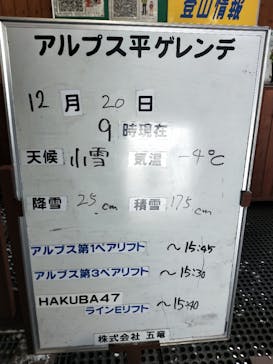 登山情報
アルプス平ゲレンデ
12月20日
9時現在
天候 小雪 気温 -4℃
降雪 25cm 積雪 175cm
アルプス第1ペアリフト ～15:45
アルプス第3ペアリフト ～15:30
HAKUBA47
ラインEリフト ～15:40
株式会社 五竜